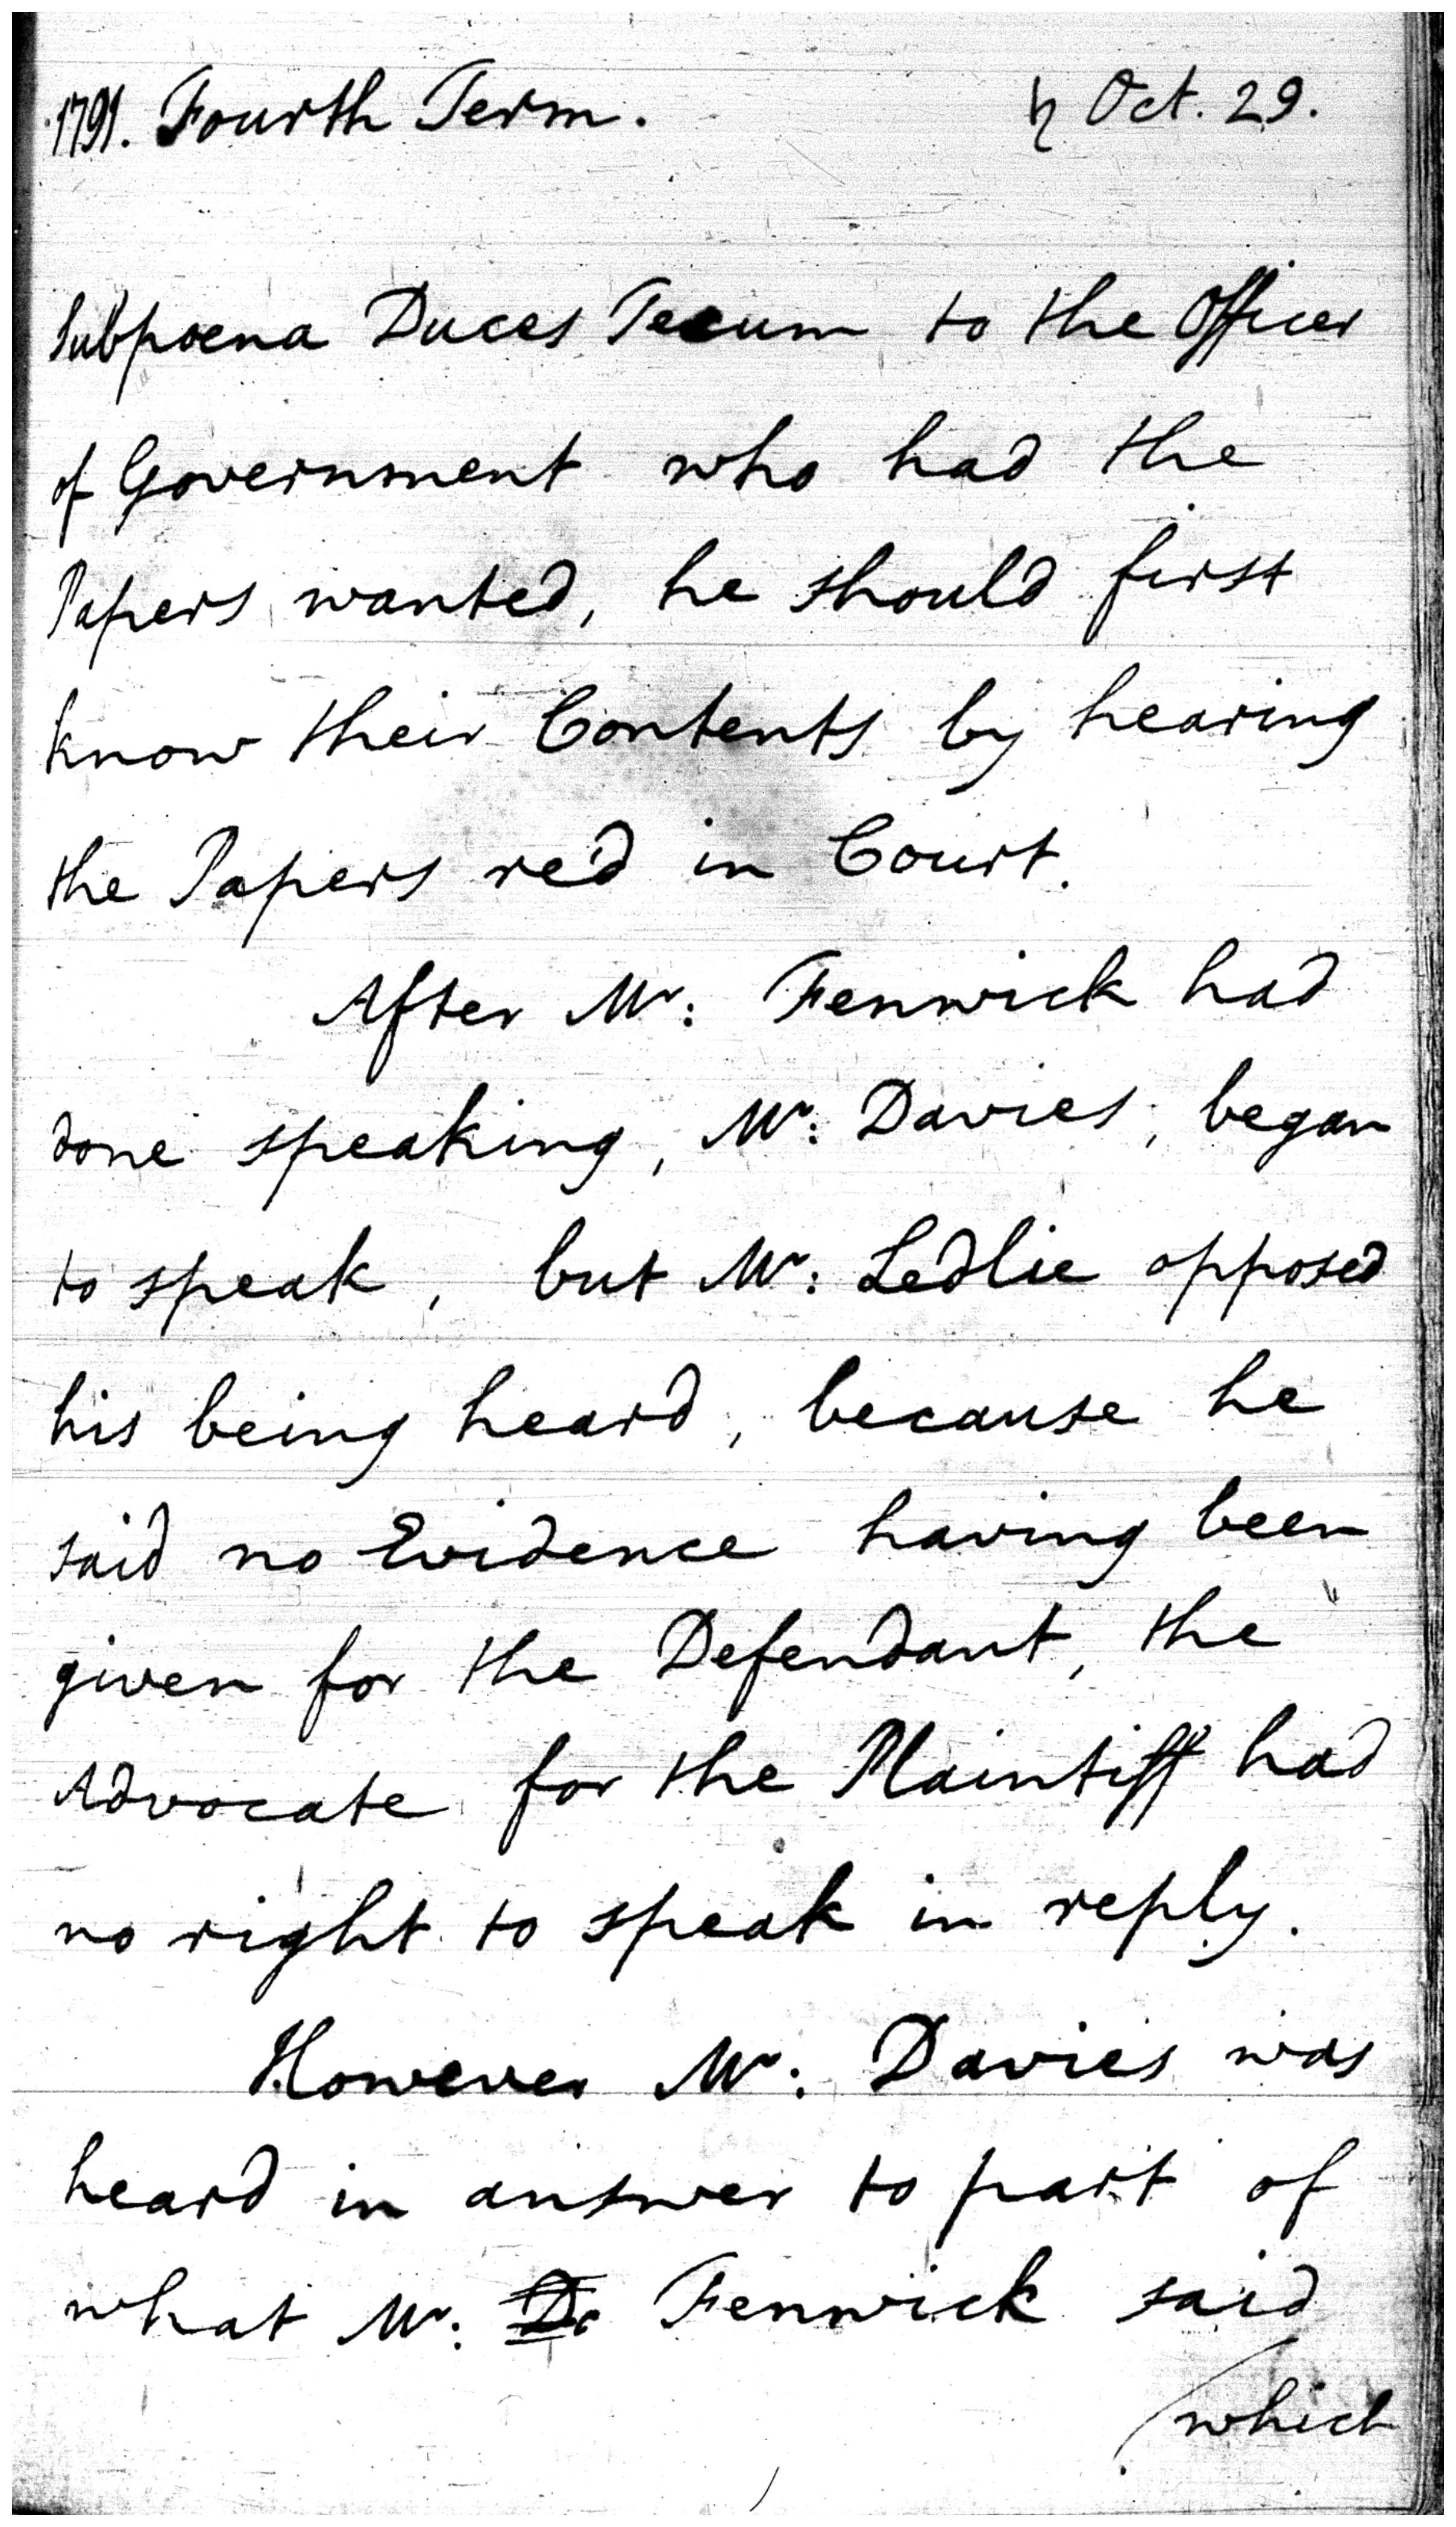 1791. Fourth Term. ♄ Oct. 29.
Subpoena Duces Tecum to the Officer
of Government who had the
Papers wanted, he should first
know their Contents by hearing
the Papers re'd in Court.
After Mr: Fenwick had
done speaking, Mr: Davies, began
to speak, but Mr: Ledlie opposed
his being heard, because he
said no Evidence having been
given for the Defendant, the
Advocate for the Plaintiff had
no right to speak in reply.
However Mr: Davies was
heard in answer to part of
what Mr: D Fenwick said
/which